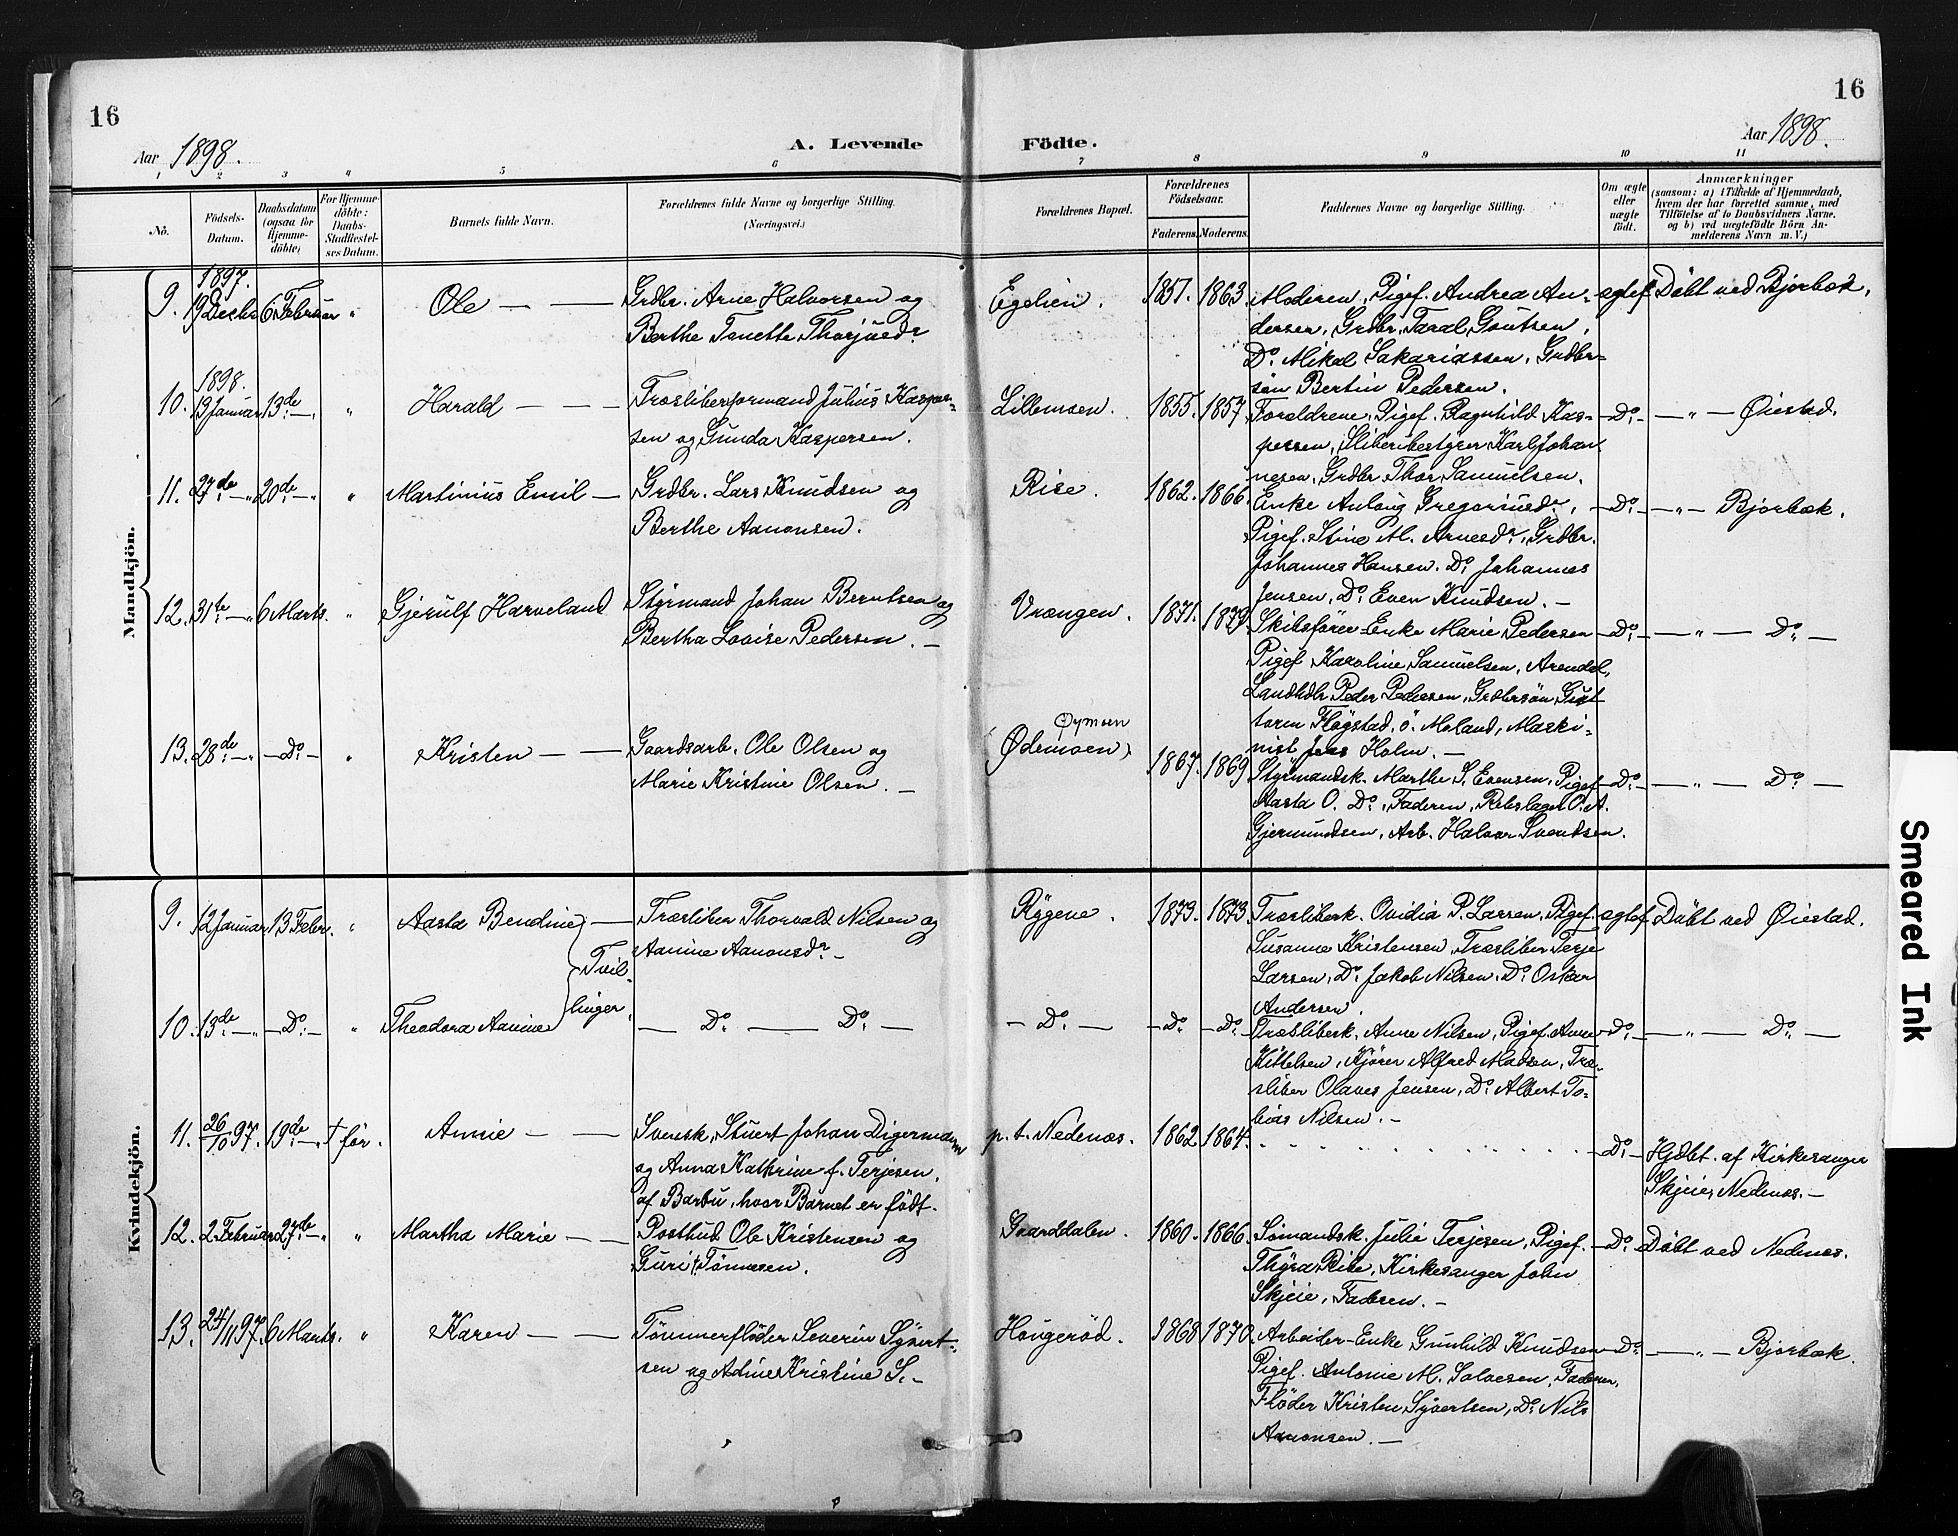 16
16
Aar 1898.
A. Levende
Födte.
Aar 1898.
1 2 3 4 5 6 7 8 9 10 11
No.
Födsels-Datum.
Daabsdatum (ogsaa for Hjemme-döbte)
For Hjemme-döbte: Daabs-Stadfæstel-ses Datum.
Barnets fulde Navn.
Forældrenes fulde Navne og borgerlige Stilling.
(Næringsvei.)
Forældrenes Bopæl.
Forældrenes Födselsaar.
Faderens. Moderens.
Faddernes Navne og borgerlige Stilling.
Om ægte eller uægte födt.
Anmærkninger
(saasom: a) i Tilfælde af Hjemmedaab, hvem der har forrettet samme, med Tilföielse af to Daabsvidners Navne. og b) ved uægtefödte Börn Anmelderens Navn m. V.)
Mandkjön.
9. 1897. 19 Decbr. 6 Februar " Ole — — Grdbr. Arne Halvorsen og
Berthe Tonette Thorjusd.
Egelien. 1851. 1863. Moderen, Pigef. Andrea An-
dersen, Grdbr. Taral Goutsen,
Do. Mikal Sakariassen, Grdbr-
sön Bertin Pedersen.
ægtef. Döbt ved Bjorbæk.
10. 1898. 13 Januar 13de — " Harald — — Træsliberformand Julius Kasper-
sen og Gunda Kaspersen.
Lillemoen. 1855. 1857. Forældrene, Pigef. Ragnhild Kas-
persen, Sliberibestyrer Karl Johan-
nesen, Grdbr. Thor Samuelsen.
— Do. — — " — Øiestad.
11. 27de — " 20de — " " Martinius Emil — Grdbr. Lars Knudsen og
Berthe Aanonsen.
Rise. 1862. 1866. Enke Anlaug Gregoriusd.,
Pigef. Stine M. Arnesd., Grdbr.
Johannes Hansen, Do. Johannes
Jensen, Do. Even Knudsen. —
— Do. — — " — Bjorbæk.
12. 31te — " 6 Marts. " Gjerulf Harveland Styrmand Johan Berntsen og
Bertha Lovise Pedersen. —
Vrængen. 1871. Skibsförer-Enke Marie Pedersen
Pigef. Karoline Samuelsen, Arendal,
Landhdlr. Peder Pedersen, Grdbrsön Gut-
torm Flogstad, ö. Moland, Maski-
nist Jens Holm. —
— Do. — — " — Do. —
13. 28de — " — Do. — " Kristen — — Gaardsarb. Ole Olsen og
Marie Kristine Olsen. —
Øymoen
(Ødemoen) 1867. 1869. Styrmandsk. Marthe S. Evensen, Pigef.
Aasta O. Do., Faderen, Rebslager O. A.
Gjermundsen, Arb. Halvor Svendsen.
— Do. — — " — Do. —
Kvindekjön.
9. 12 Januar 13 Febr. " Aasta Bendine — Træsliber Thorvald Nilsen og
Aanine Aanonsd. —
Tvil-
linger.
Rygene. 1873. 1873. Træsliberk. Ovidia P. Larsen, Pigef.
Susanne Kristensen, Træsliber Terje
Larsen, Do. Jakob Nilsen, Do. Oskar
Andersen.
ægtef. Döbt ved Øiestad.
10. 13de — " — Do. — " Theodora Aanine — Do. — Do. —
— Do. — — Do. — Do. — Træsliberk. Anne Nilsen, Pigef. Anne
Kittelsen, Kjörer Alfred Madsen, Træ-
sliber Olaves Jensen, Do. Albert To-
bias Nilsen. —
— Do. — — " — Do. —
11. 26/10 97. 19de — " för. Annie — — Svensk Stuert Johan
og Anna Kathrine f. Terjesen,
af Barbu, hvor Barnet er födt.
p. t. Nedenæs. 1862 1864. — Do. — Hjdbt. af Kirkesanger
Skjeie, Nedenæs. —
12. 2 Februar 27de — " " Martha Marie — Postbud Ole Kristensen og
Guri Tönnesen.
Gaarddalen. 1860. 1866. Sömandsk. Julie Terjesen, Pigef.
Thyra Rise, Kirkesanger John
Skjeie, Faderen. —
— Do. — Döbt ved Nedenæs.
13. 24/11 97. 6 Marts. " Karen — — Tömmerflöder Severin Syvert-
sen og Adine Kristine S. —
Hougeröd. 1868 1870. Arbeider-Enke Gunhild Knudsen
Pigef. Antonie M. Salvesen, Faderen,
Flöder Kristen Syvertsen, Do. Nils
Aanonsen. —
Do. — " — Bjorbæk.
Smeared Ink